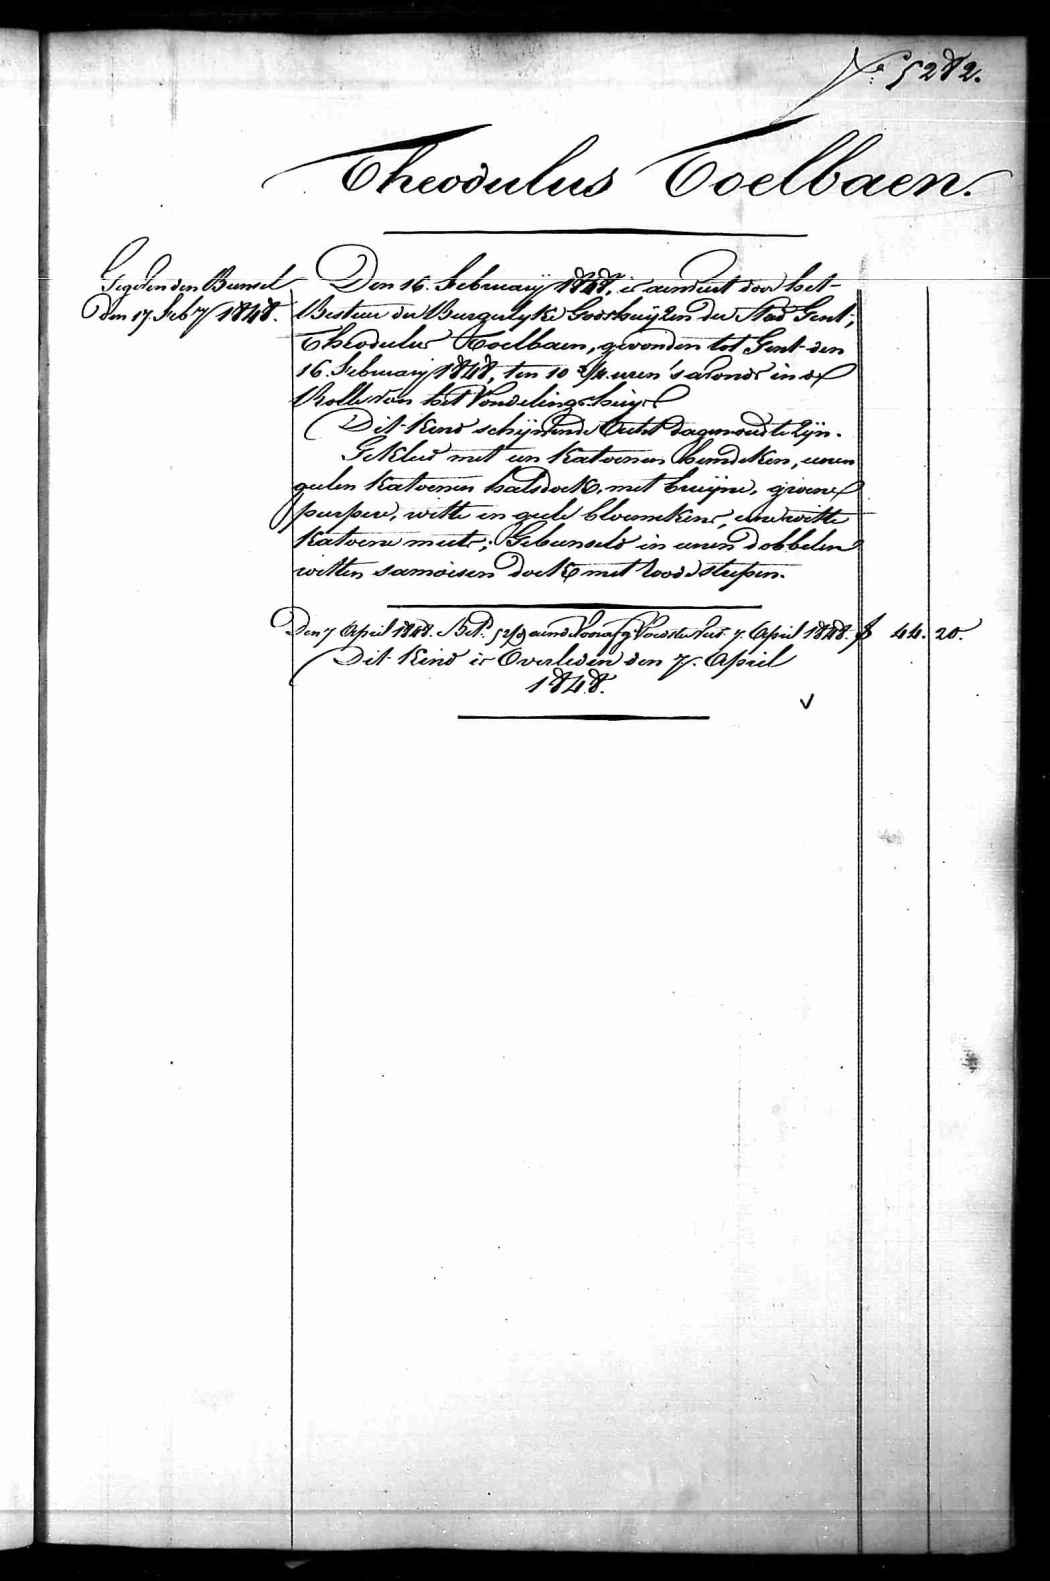 N.° 5282.
Theodulus Toelbaen.
Gegeven den Bunsel
Den 17. Feb.ÿ 1848.
Den 16. Februarÿ 1848, is aenveert door het
Bestuer der Burgerlyke Godshuÿzen der Stad Gent,
Theodulus Toelbaen, gevonden tot Gent den
16. Februarÿ 1848, ten 10 3/4 uren 's avonds in de
Rolle van het Vondelings-huÿs
Dit kind schÿnende Acht dagen oud te zÿn.
Gekleed met een katoenen hemdeken, eenen
geelen katoenen halsdoek, met bruÿne, groene
purpere, witte en geele bloemekens, eene witte
katoene muts; Gebunseld in eenen dobbelen
witten samoisen doek met roode streepen.
Den 7 April 1848. Bet. 52 7. April 1848. f 44. 20.
Dit kind is Overleden den 7. April
1848.